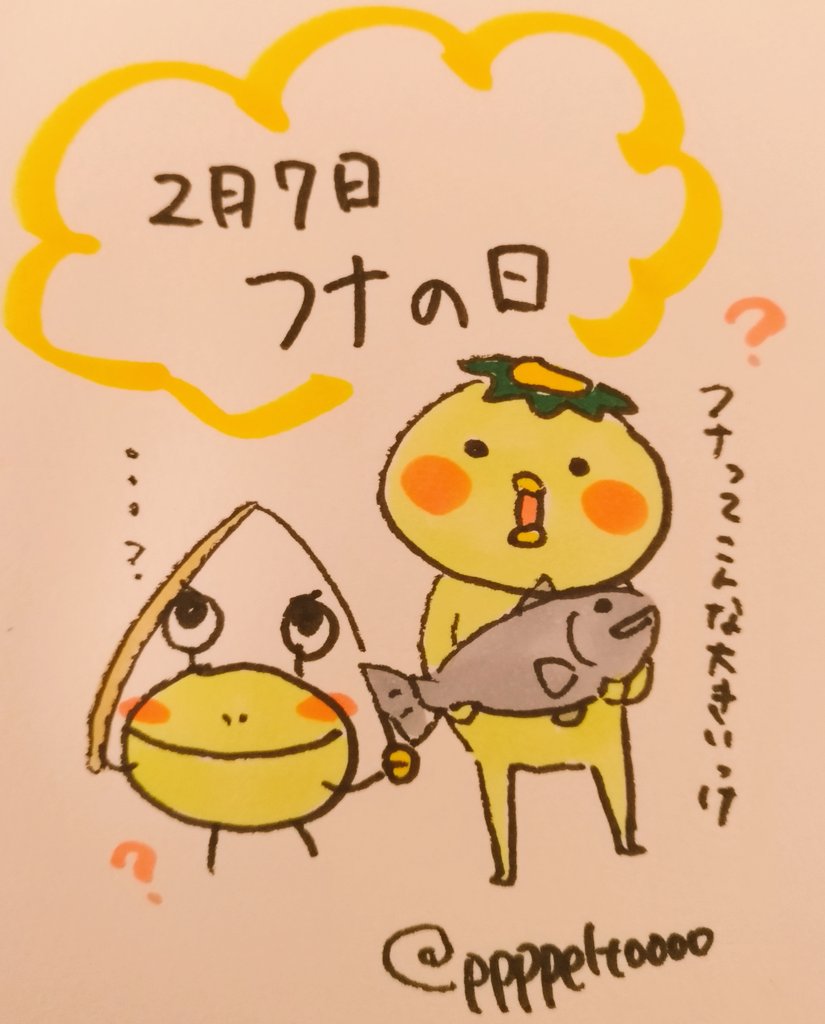 2月7日
フナの日
?
フナってこんな大きいっけ
...?
?
@ppppeltoooo